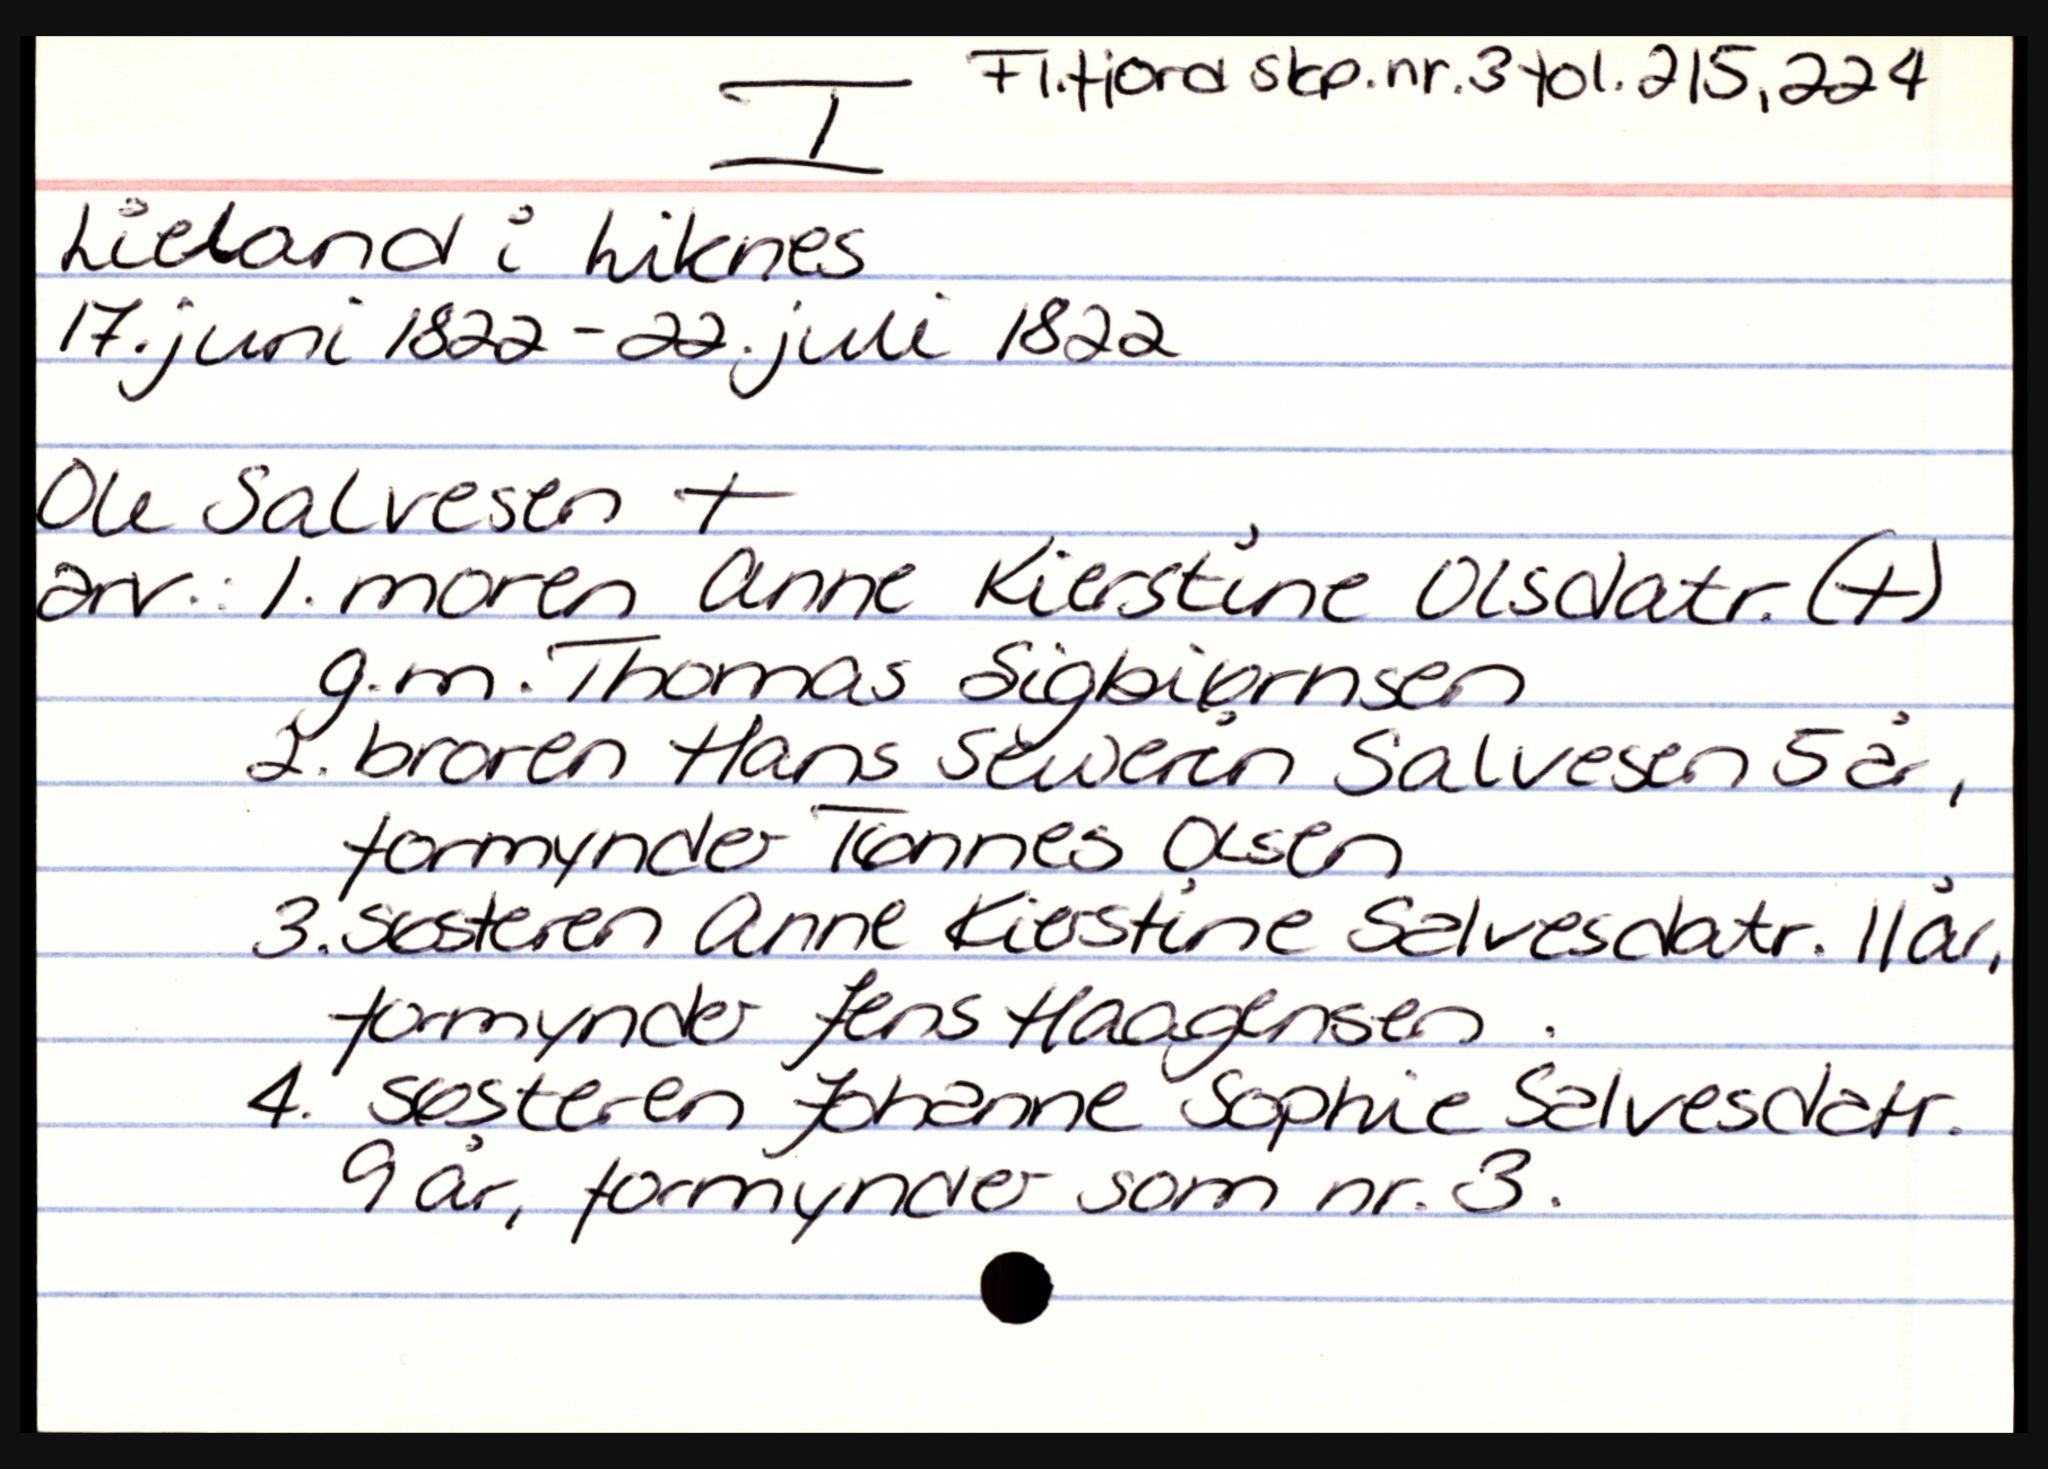 Fl.fjord skp.nr.3 fol. 215, 224
I
Lieland i Liknes
17. juni 1822 - 22. juli 1822
Ole Salvesen +
arv.: 1. moren Anne Kierstine Olsdatr. (+)
g.m. Thomas Sigbiørnsen
2. broren Hans Sewerin Salvesen 5 år,
formynder Tønnes Olsen
3. søsteren Anne Kierstine Salvesdatr. 11 år,
formynder Jens Haagensen.
4. søsteren Johanne Sophie Salvesdatr.
9 år, formynder som nr. 3.